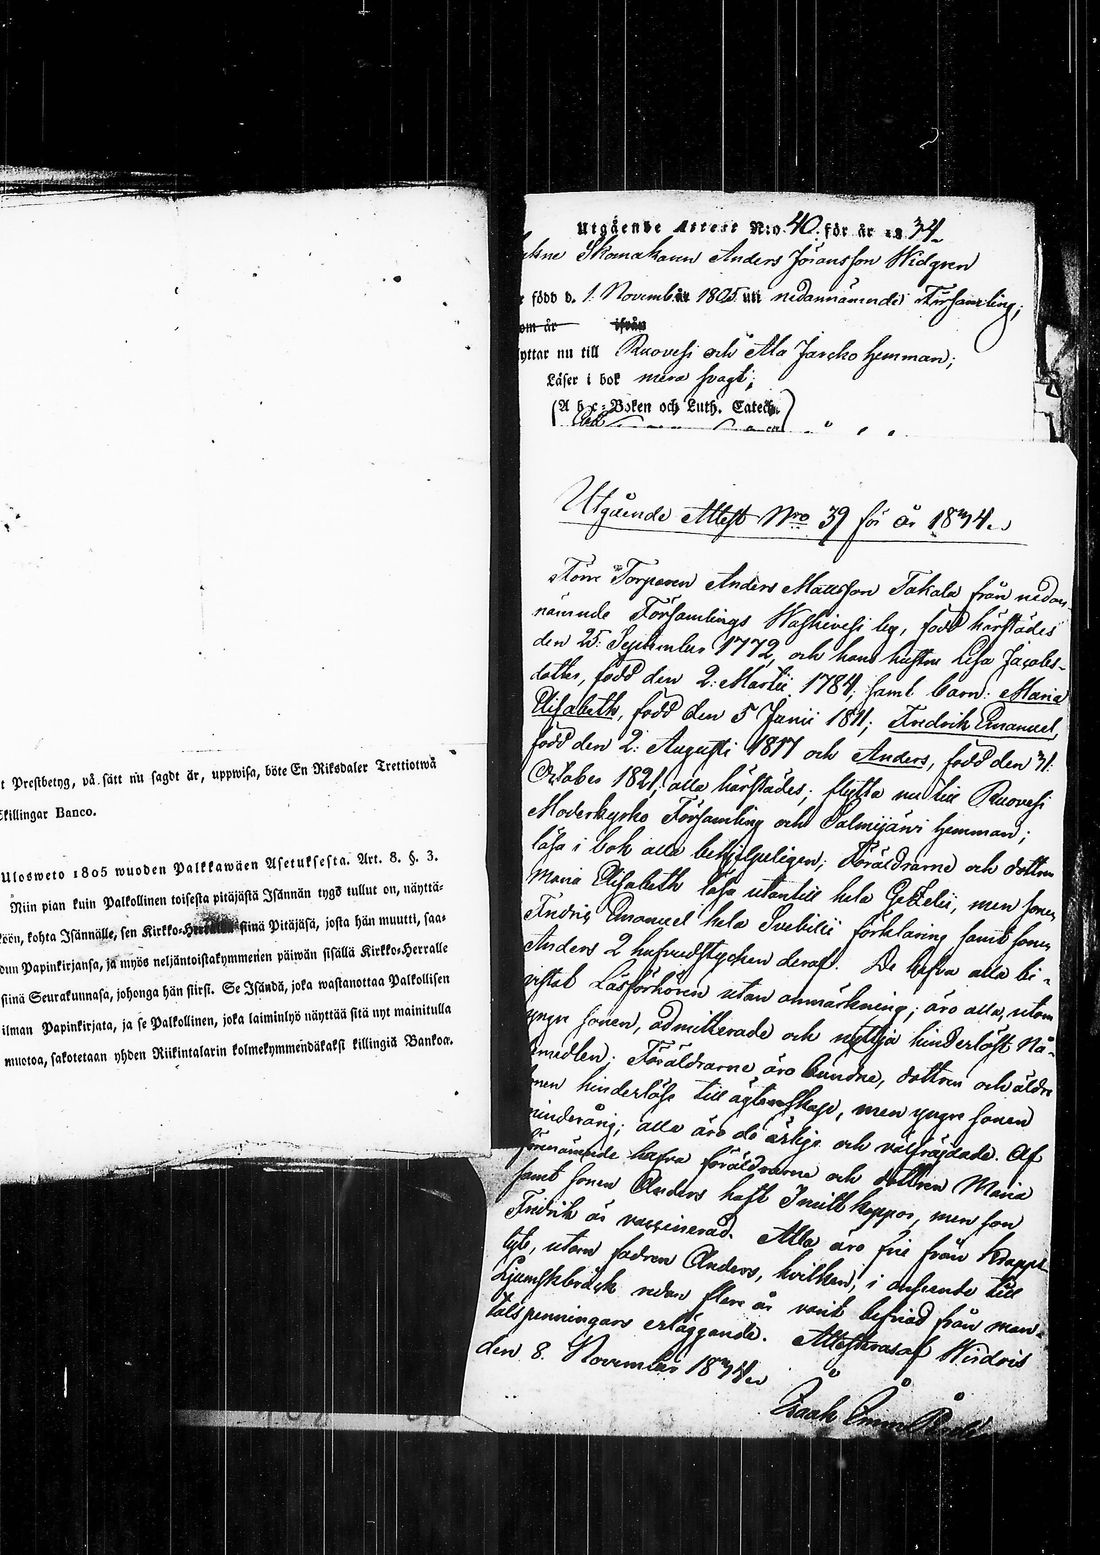 t Prestbetyg, på sätt nu sagdt är, uppwisa, böte En Riksdaler Trettiotwå
killingar Banco.
Ulosweto 1805 wuoden Palkkawäen Asetuksesta. Art. 8. §. 3.
Niin pian kuin Palkollinen toisesta pitäjästä Isännän tygö tullut on, näyttä-
köön, kohta Isännälle, sen Kirkko-Herralda siinä Pitäjäsä, josta hän muutti, saa-
dun Papinkirjansa, ja myös neljäntoistakymmenen päiwän sisällä Kirkko-Herralle
siinä Seurakunnasa, johonga hän siirsi. Se Isändä, joka wastanottaa Palkollisen
ilman Papinkirjata, ja se Palkollinen, joka laiminlyö näyttää sitä nyt mainitulla
muotoa, sakotetaan yhden Riikintalarin kolmekymmendäkaksi killingiä Bankoa.
Utgående Attest N:o 40. för år 1834.
Skomakaren Anders Jöransson Widgren
född d. 1. November 1805 uti nedannämnde Församling;
om år ifrån
yttar nu till Ruovesi och Ala Jaesko hemman;
Läser i bok mera svagt;
(A b c: Boken och Luth. Catech.
Utgående Attest Nro 39 för år 1834.
Förre Torparen Anders Mattsson Takala från nedan-
nämnde Församlings Waskivesi by, född härstädes
den 25. September 1772, och hans hustru Lisa Jacobs-
dotter, född den 2: Martii 1784; samt barn: Maria
Elisabeth, född den 5 Junii 1811; Fredrik Emanuel,
född den 2: Augusti 1817 och Anders, född den 31.
October 1821, alla härstädes; flytta nu till Ruovesi
Moderkyrko Församling och Salmijärvi hemman;
läsa i bok alla behjelpeligen; Föräldrarne och dottren
Maria Elisabeth läsa utantill hela Gezelii, men sonen
Fredrik Emanuel hela Svebilii förklaring samt sonen
Anders 2 hufvudstycken deraf. De hafva alla bi-
vistat Läsförhören utan anmärkning; äro alla, utom
yngre sonen, admitterade och nyttja hinderlöst Nå-
demedlen; Föräldrarne äro bundne, dottren och äldre
sonen hinderlöse till äktenskap, men yngre sonen
minderårig; alla äro de ärlige och välfräjdade. Af
förenämnde hafva föräldrarne och dottren Maria
samt sonen Anders haft Smittkoppor, men son
Fredrik är vaccinerad. Alla äro frie från Krono
tyte, utom fadren Anders, hvilken, i anseende till
Ljumskbråck redan flere år varit befriad från man-
talspenningars erläggande. Attesteras af Wirdois
den 8. November 1834.